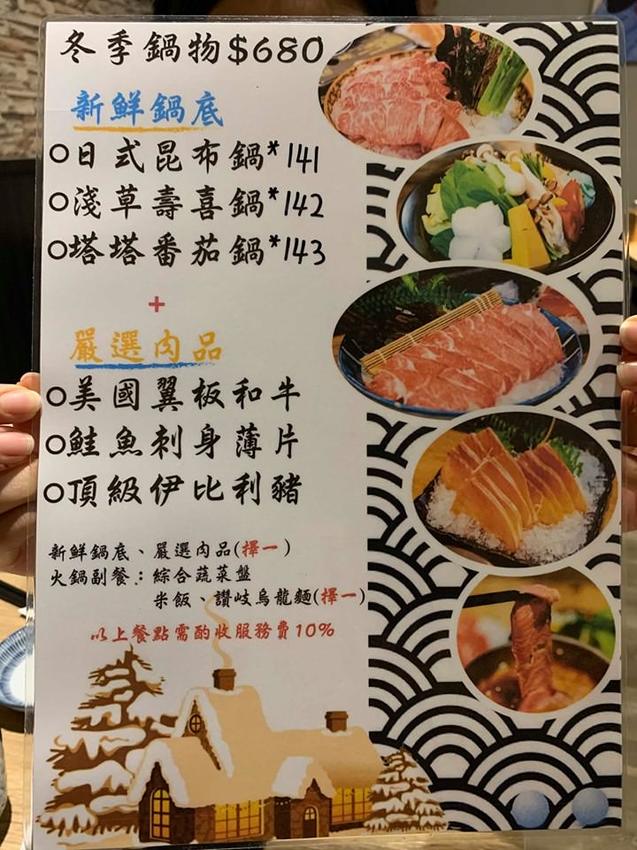 冬季鍋物$680
新鮮鍋底
日式昆布鍋*141
淺草壽喜鍋*142
塔塔番茄鍋*143
+
嚴選肉品
美國翼板和牛
鮭魚刺身薄片
頂級伊比利豬
新鮮鍋底、嚴選肉品(擇一)
火鍋副餐：綜合蔬菜盤
米飯、讚岐烏龍麵(擇一)
以上餐點需酌收服務費10%